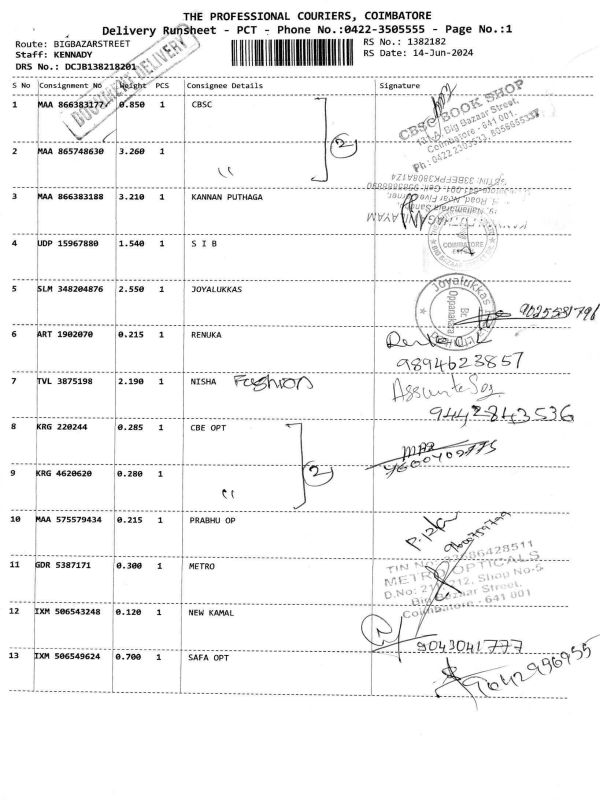 THE PROFESSIONAL COURIERS, COIMBATORE
Delivery Runsheet - PCT - Phone No.:0422-3505555 - Page No.:1
Route: BIGBAZARSTREET
RS No.: 1382182
Staff: KENNADY
RS Date: 14-Jun-2024
DRS No.: DCJB138218201
DOCUMENT DELIVERY
S No Consignment No Weight PCS Consignee Details Signature
1 MAA 866383177 0.850 1 CBSC
CBSC BOOK SHOP
Big Bazaar Street,
Coimbatore - 641 001.
2 MAA 865748630 3.260 1 "
2
3 MAA 866383188 3.210 1 KANNAN PUTHAGA
4 UDP 15967880 1.540 1 S I B
COIMBATORE
5 SLM 348204876 2.550 1 JOYALUKKAS
Joyalukkas
Oppanakara
6 ART 1902070 0.215 1 RENUKA
9894623857
7 TVL 3875198 2.190 1 NISHA Fashion
9442843536
8 KRG 220244 0.285 1 CBE OPT
9 KRG 4620620 0.280 1 "
2
10 MAA 575579434 0.215 1 PRABHU OP
11 GDR 5387171 0.300 1 METRO
METRO OPTICALS
Shop No-5
Big Bazaar Street,
Coimbatore - 641 001
12 IXM 506543248 0.120 1 NEW KAMAL
9043041777
13 IXM 506549624 0.700 1 SAFA OPT
9042996955